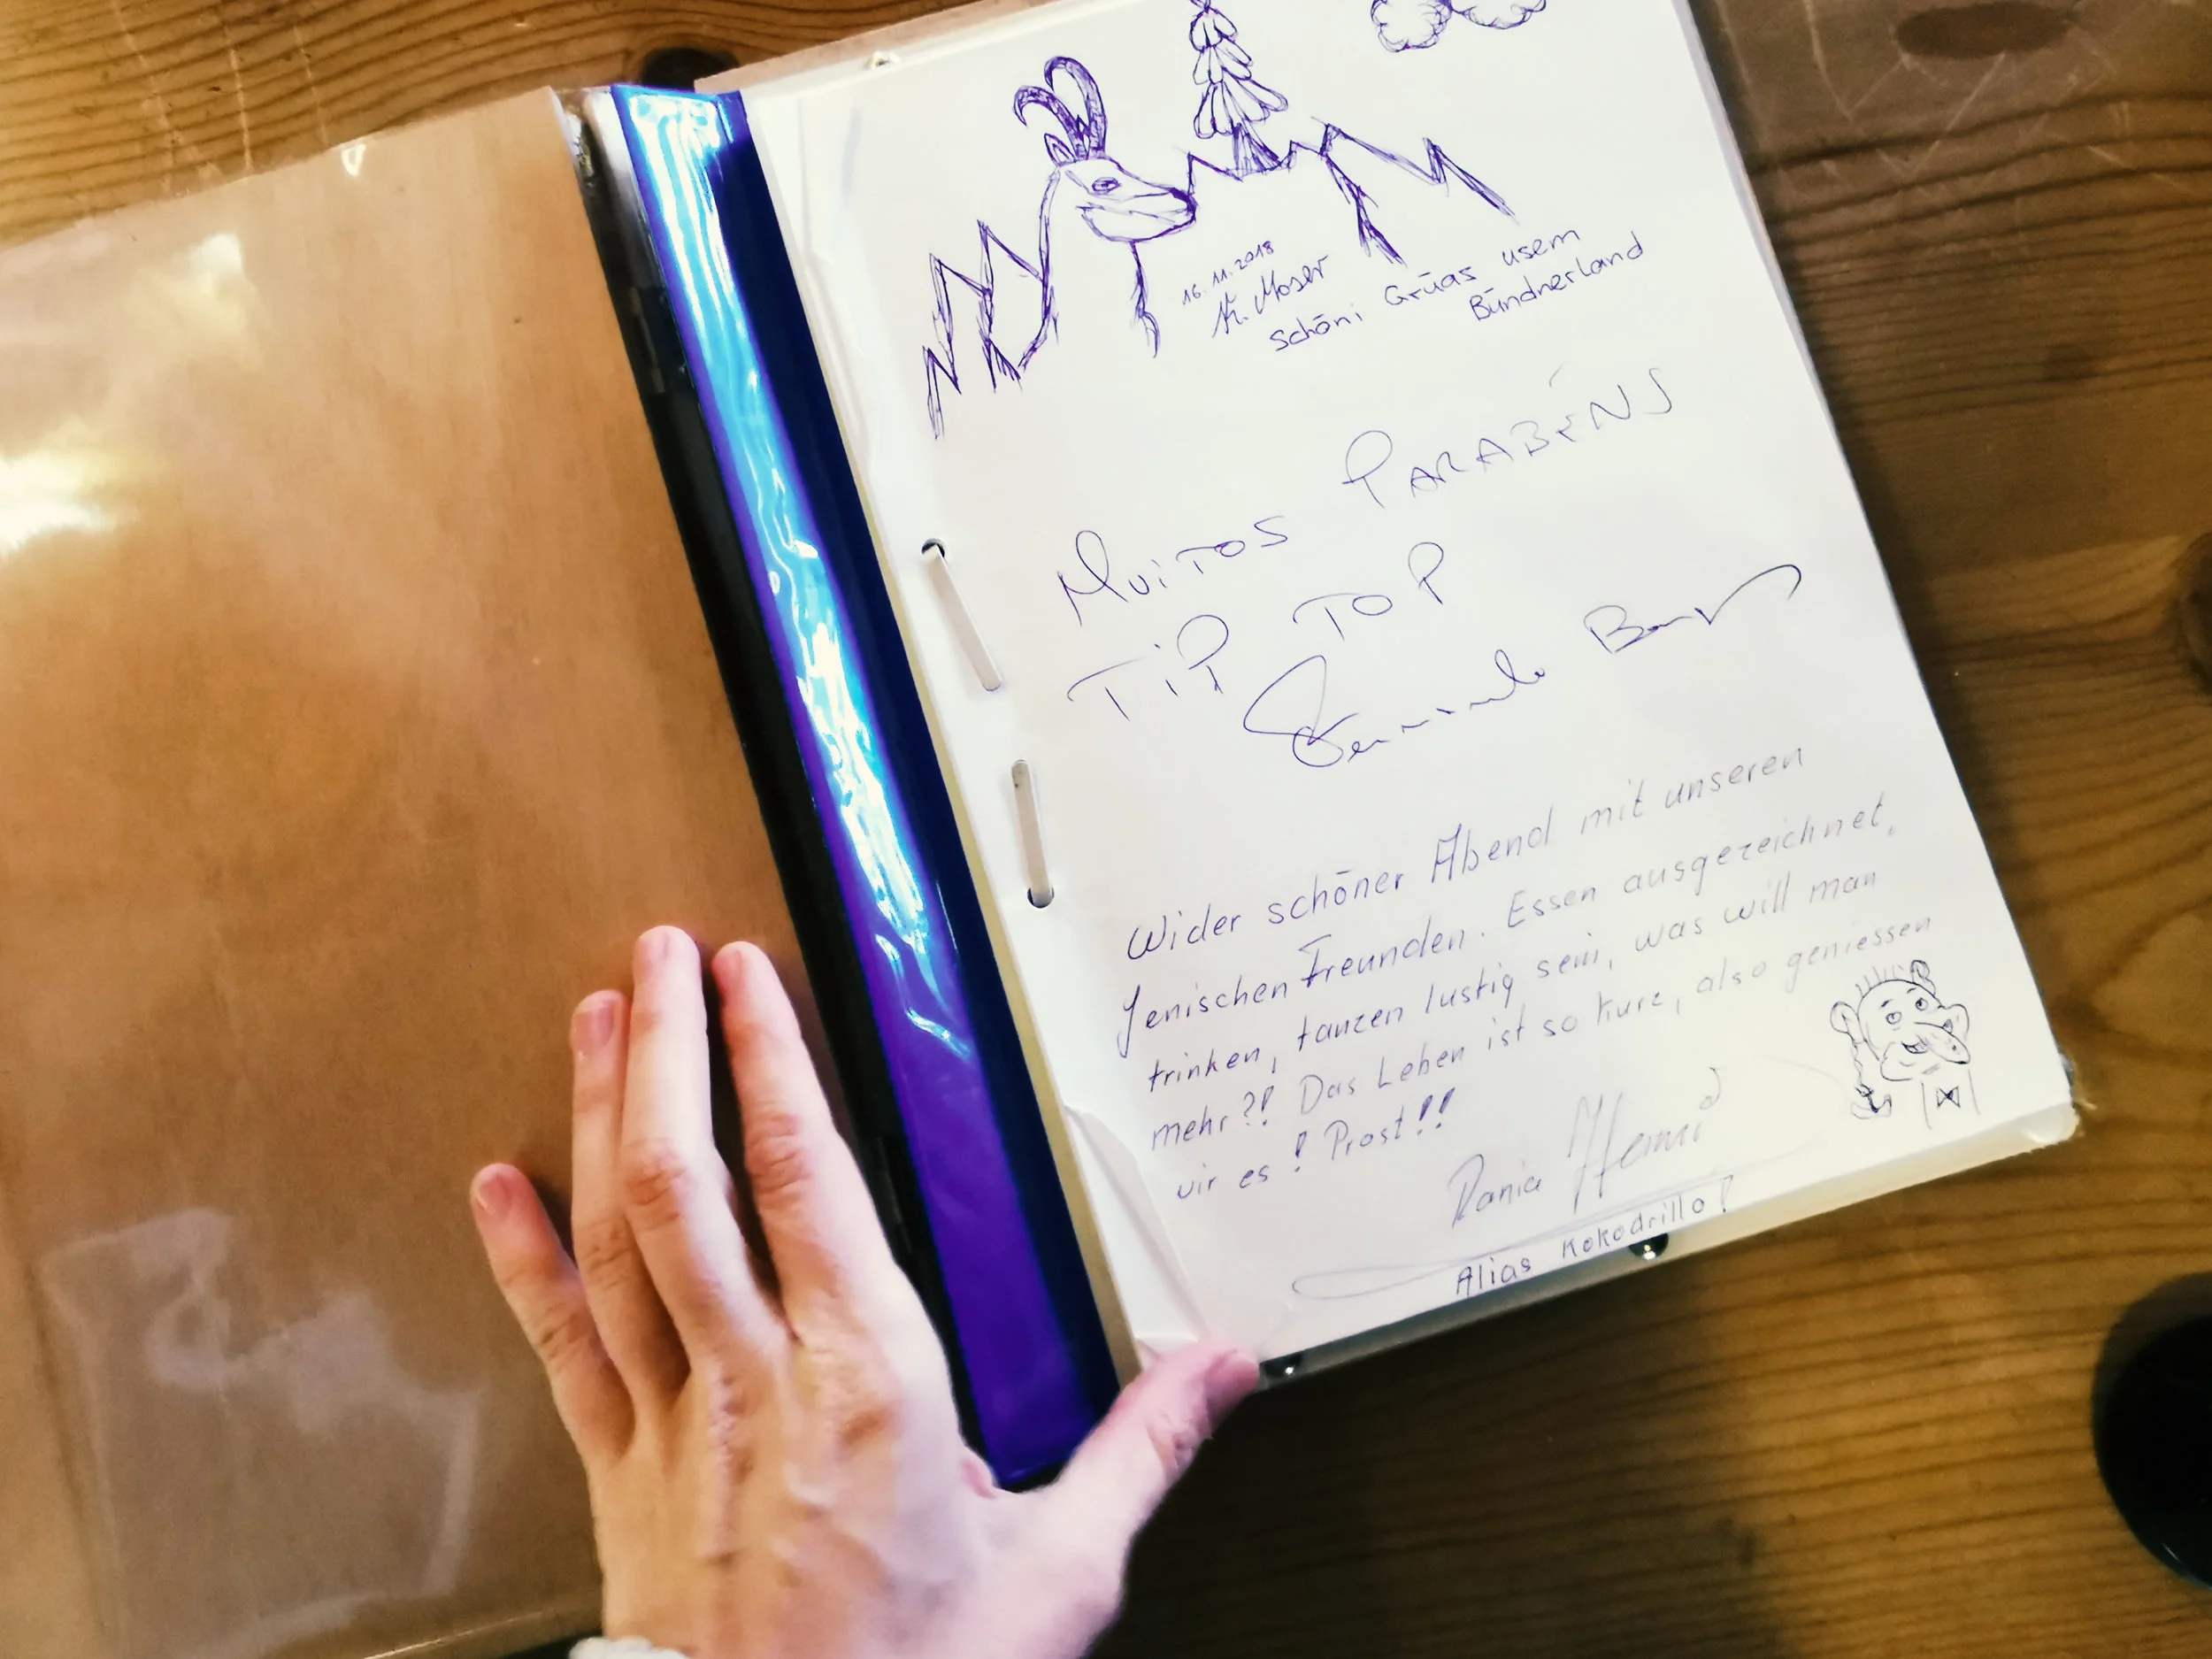 16.11.2018
K. Moser
Schöni Grüas usem
Bündnerland
MUITOS PARABÉNS
TiP TOP
Wider schöner Abend mit unseren
Jenischen Freunden. Essen ausgezeichnet,
trinken, tanzen lustig sein, was will man
mehr?! Das Leben ist so kurz, also geniessen
wir es! Prost!!
Rania
Alias Kokodrillo!